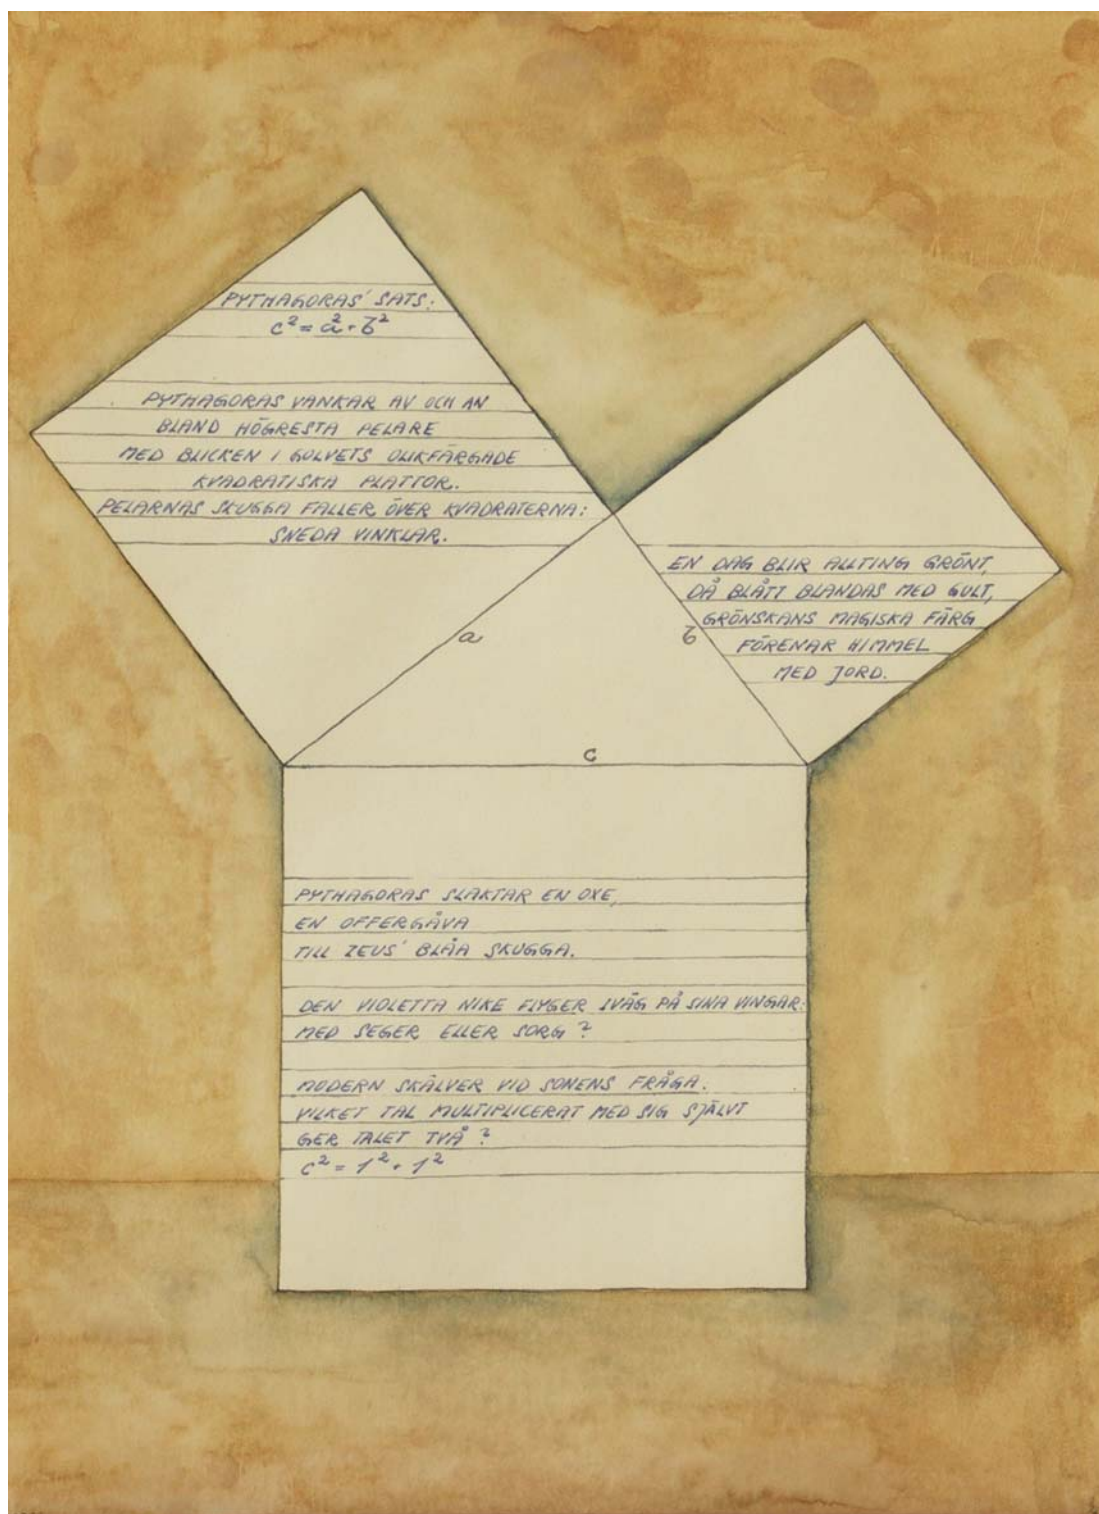 PYTHAGORAS' SATS:
c² = a² + b²
PYTHAGORAS VANKAR AV OCH AN
BLAND HÖGRESTA PELARE
MED BLICKEN I GOLVETS OLIKFÄRGADE
KVADRATISKA PLATTOR.
PELARNAS SKUGGA FALLER ÖVER KVADRATERNA:
SNEDA VINKLAR.
EN DAG BLIR ALLTING GRÖNT,
DÅ BLÅTT BLANDAS MED GULT,
GRÖNSKANS MAGISKA FÄRG
FÖRENAR HIMMEL
MED JORD.
a
b
c
PYTHAGORAS SLAKTAR EN OXE,
EN OFFERGÅVA
TILL ZEUS' BLÅA SKUGGA.
DEN VIOLETTA NIKE FLYGER IVÄG PÅ SINA VINGAR:
MED SEGER ELLER SORG?
MODERN SKÄLVER VID SONENS FRÅGA.
VILKET TAL MULTIPLICERAT MED SIG SJÄLVT
GER TALET TVÅ?
c² = 1² + 1²